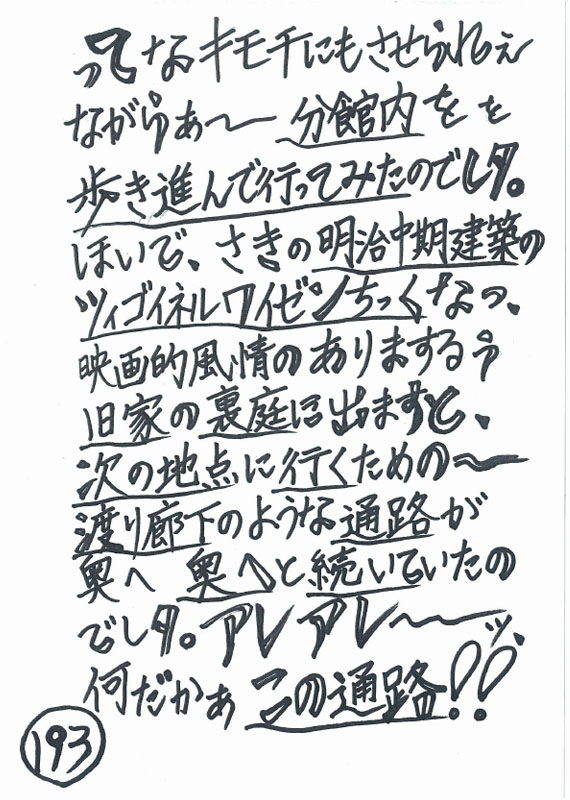 ってなキモチにもさせられるぇ
ながらぁ〜分館内をを
歩き進んで行ってみたのでした。
ほいで、さきの明治中期建築の
ツィゴイネルワイゼンちっくなっ、
映画的風情のありまするぅ
旧家の裏庭に出ますと、
次の地点に行くための〜
渡り廊下のような通路が
奥へ奥へと続いていたの
でした。アレアレ〜〜ッ、
何だかぁこの通路!!
193